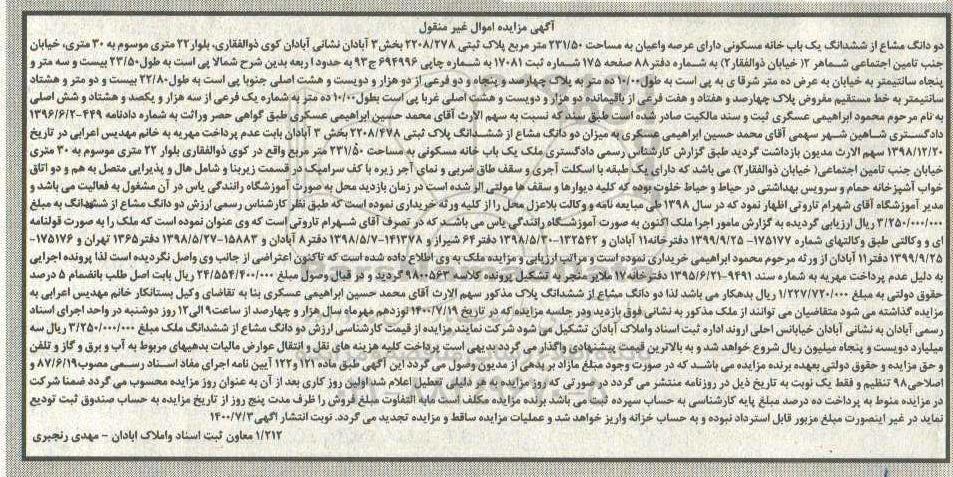 آگهی مزایده اموال غیر منقول
دو دانگ مشاع از ششدانگ یک باب خانه مسکونی دارای عرصه واعیان به مساحت ۲۳۱/۵۰ متر مربع پلاک ثبتی ۲۲۰۸/۲۷۸ بخش۳ آبادان نشانی آبادان کوی ذوالفقاری، بلوار۲۲ متری موسوم به ۳۰ متری، خیابان
جنب تامین اجتماعی شماهر ۲( خیابان ذوالفقار۲) به شماره دفتر۸۸ صفحه ۱۷۵ شماره ثبت ۱۷۰۸۱ به شماره چاپی ۶۹۴۹۹۶ ج۹۳ به حدود اربعه بدین شرح شمالا پی است به طول۲۳/۵۰ بیست و سه متر و
پنجاه سانتیمتر به خیابان به عرض ده متر شرقا ی به پی است به طول۱۰/۰۰ ده متر به پلاک چهارصد و پنجاه و دو فرعی از دو هزار و دویست و هشت اصلی جنوبا پی است به طول۲۲/۸۰ بیست و دو متر و هشتاد
سانتیمتر به خط مستقیم مفروض پلاک چهارصد و هفتاد و هفت فرعی از باقیمانده دو هزار و دویست و هشت اصلی غربا پی است بطول۱۰/۰۰ ده متر به شماره یک فرعی از سه هزار و یکصد و هشتاد و شش اصلی
به نام مرحوم محمود ابراهیمی عسگری ثبت و سند مالکیت صادر شده است طبق سند که نسبت به سهم الارث آقای محمد حسین ابراهیمی عسکری طبق گواهی حصر وراثت به شماره دادنامه ۴۴۹-۱۳۹۶/۶/۲
دادگستری شاهین شهر سهمی آقای محمد حسین ابراهیمی عسکری به میزان دو دانگ مشاع از ششدانگ پلاک ثبتی ۲۲۰۸/۴۷۸ بخش ۳ آبادان بابت عدم پرداخت مهریه به خانم مهدیس اعرابی در تاریخ
۱۳۹۸/۱۲/۲۰ سهم الارث مدیون بازداشت گردید طبق گزارش کارشناس رسمی دادگستری ملک یک باب خانه مسکونی به مساحت ۲۳۱/۵۰ متر مربع واقع در کوی ذوالفقاری بلوار ۲۲ متری موسوم به ۳۰ متری
خیابان جنب تامین اجتماعی( خیابان ذوالفقار۲) می باشد که دارای یک طبقه با اسکلت آجری و سقف طاق ضربی و نمای آجر زیره با کف سرامیک در قسمت زیربنا و شامل هال و پذیرایی متصل به هم و دو اتاق
خواب آشپزخانه حمام و سرویس بهداشتی در حیاط و حیاط خلوت بوده که کلیه دیوارها و سقف ها مولتی الر شده است در زمان بازدید محل به صورت آموزشگاه رانندگی یاس در آن مشغول به فعالیت می باشد و
مدیر آموزشگاه آقای شهرام تاروتی اظهار نمود که در سال ۱۳۹۸ طی مبایعه نامه و وکالت بلاعزل محل را از کلیه ورثه خریداری نموده است که طبق نظر کارشناس رسمی ارزش دو دانگ مشاع از ششدانگ به مبلغ
۳/۲۵۰/۰۰۰/۰۰۰ ریال ارزیابی گردیده به گزارش مامور اجرا ملک اکنون به صورت آموزشگاه رانندگی یاس می باشد که در تصرف آقای شهرام تاروتی است که وی عنوان نموده است که ملک را به صورت قولنامه
ای و وکالتی طبق وکالتهای شماره ۱۷۵۱۷۷- ۱۳۹۹/۹/۲۵ دفترخانه۱۱ آبادان و ۱۳۲۵۴۲-۱۳۹۸/۵/۳۰ دفتر۶۴ شیراز و ۱۴۱۳۷۸-۱۳۹۸/۵/۷ دفتر۸ آبادان و ۱۵۸۸۳-۱۳۹۸/۵/۲۷ دفتر۱۳۶۵ تهران و ۱۷۵۱۷۶-
۱۳۹۹/۹/۲۵ دفتر۱۱ آبادان از ورثه مرحوم محمود ابراهیمی خریداری نموده است و مراتب ارزیابی و مزایده ملک به وی اطلاع داده شده است که تاکنون اعتراضی از جانب وی واصل نگردیده است لذا پرونده اجرایی
به دلیل عدم پرداخت مهریه به شماره سند ۹۴۹۱-۱۳۹۵/۶/۲۱ دفترخانه۱۷ ملایر منجر به تشکیل پرونده کلاسه ۹۸۰۰۵۶۳ گردید و در قبال وصول مبلغ ۲۴/۵۵۴/۴۰۰/۰۰۰ ریال بابت اصل طلب بانضمام ۵ درصد
حقوق دولتی به مبلغ ۱/۲۲۷/۷۲۰/۰۰۰ ریال بدهکار می باشد لذا دو دانگ مشاع از ششدانگ پلاک مذکور سهم الارث آقای محمد حسین ابراهیمی عسکری بنا به تقاضای وکیل بستانکار خانم مهدیس اعرابی به
مزایده گذاشته می شود متقاضیان می توانند از ملک مذکور به نشانی فوق بازدید ودر جلسه مزایده که در تاریخ ۱۴۰۰/۷/۱۹ نوزدهم مهرماه سال هزار و چهارصد از ساعت۹ الی۱۲ روز دوشنبه در واحد اجرای اسناد
رسمی آبادان به نشانی آبادان خیابانس احلی اروند اداره ثبت اسناد واملاک آبادان تشکیل می شود شرکت نمایند مزایده از قیمت کارشناسی ارزش دو دانگ مشاع از ششدانگ ملک مبلغ ۳/۲۵۰/۰۰۰/۰۰۰ ریال سه
میلیارد دویست و پنجاه میلیون ریال شروع خواهد شد و به بالاترین قیمت پیشنهادی واگذار می گردد بدیهی است پرداخت کلیه هزینه های نقل و انتقال عوارض مالیات بدهیهای مربوط به آب و برق و گاز و تلفن
و حق مزایده و حقوق دولتی بعهده برنده مزایده می باشد که در صورت وجود مبلغ مازاد بر بدهی از مدیون وصول می گردد این آگهی طبق ماده ۱۲۱ و۱۲۲ آیین نامه اجرای مفاد اسناد رسمی مصوب۸۷/۶/۱۹ و
اصلاحی۹۸ تنظیم و فقط یک نوبت به تاریخ ذیل در روزنامه منتشر می گردد در صورتی که روز مزایده به هر دلیلی تعطیل اعلام شد اولین روز کاری بعد از آن به عنوان روز مزایده محسوب می گردد ضمنا شرکت
در مزایده منوط به پرداخت ده درصد مبلغ پایه کارشناسی به حساب سپرده ثبت می باشد برنده مزایده مکلف است مابه التفاوت مبلغ فروش را ظرف مدت پنج روز از تاریخ مزایده به حساب صندوق ثبت تودیع
نماید در غیر اینصورت مبلغ مزبور قابل استرداد نبوده و به حساب خزانه واریز خواهد شد و عملیات مزایده ساقط و مزایده تجدید می گردد. نوبت انتشار آگهی۱۴۰۰/۷/۳
۱/۲۱۲ معاون ثبت اسناد واملاک ابادان – مهدی رنجبری